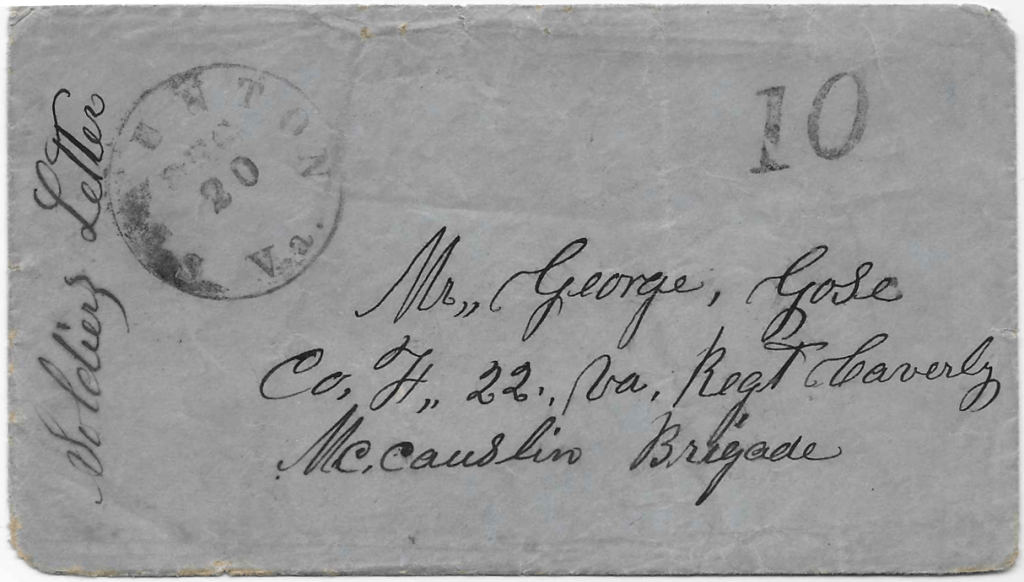 Soldiers Letter
UNTON Va.
20
10
Mr,, George, Gose
Co, H,, 22., Va, Regt Caverly
Mc.causlin Brigade